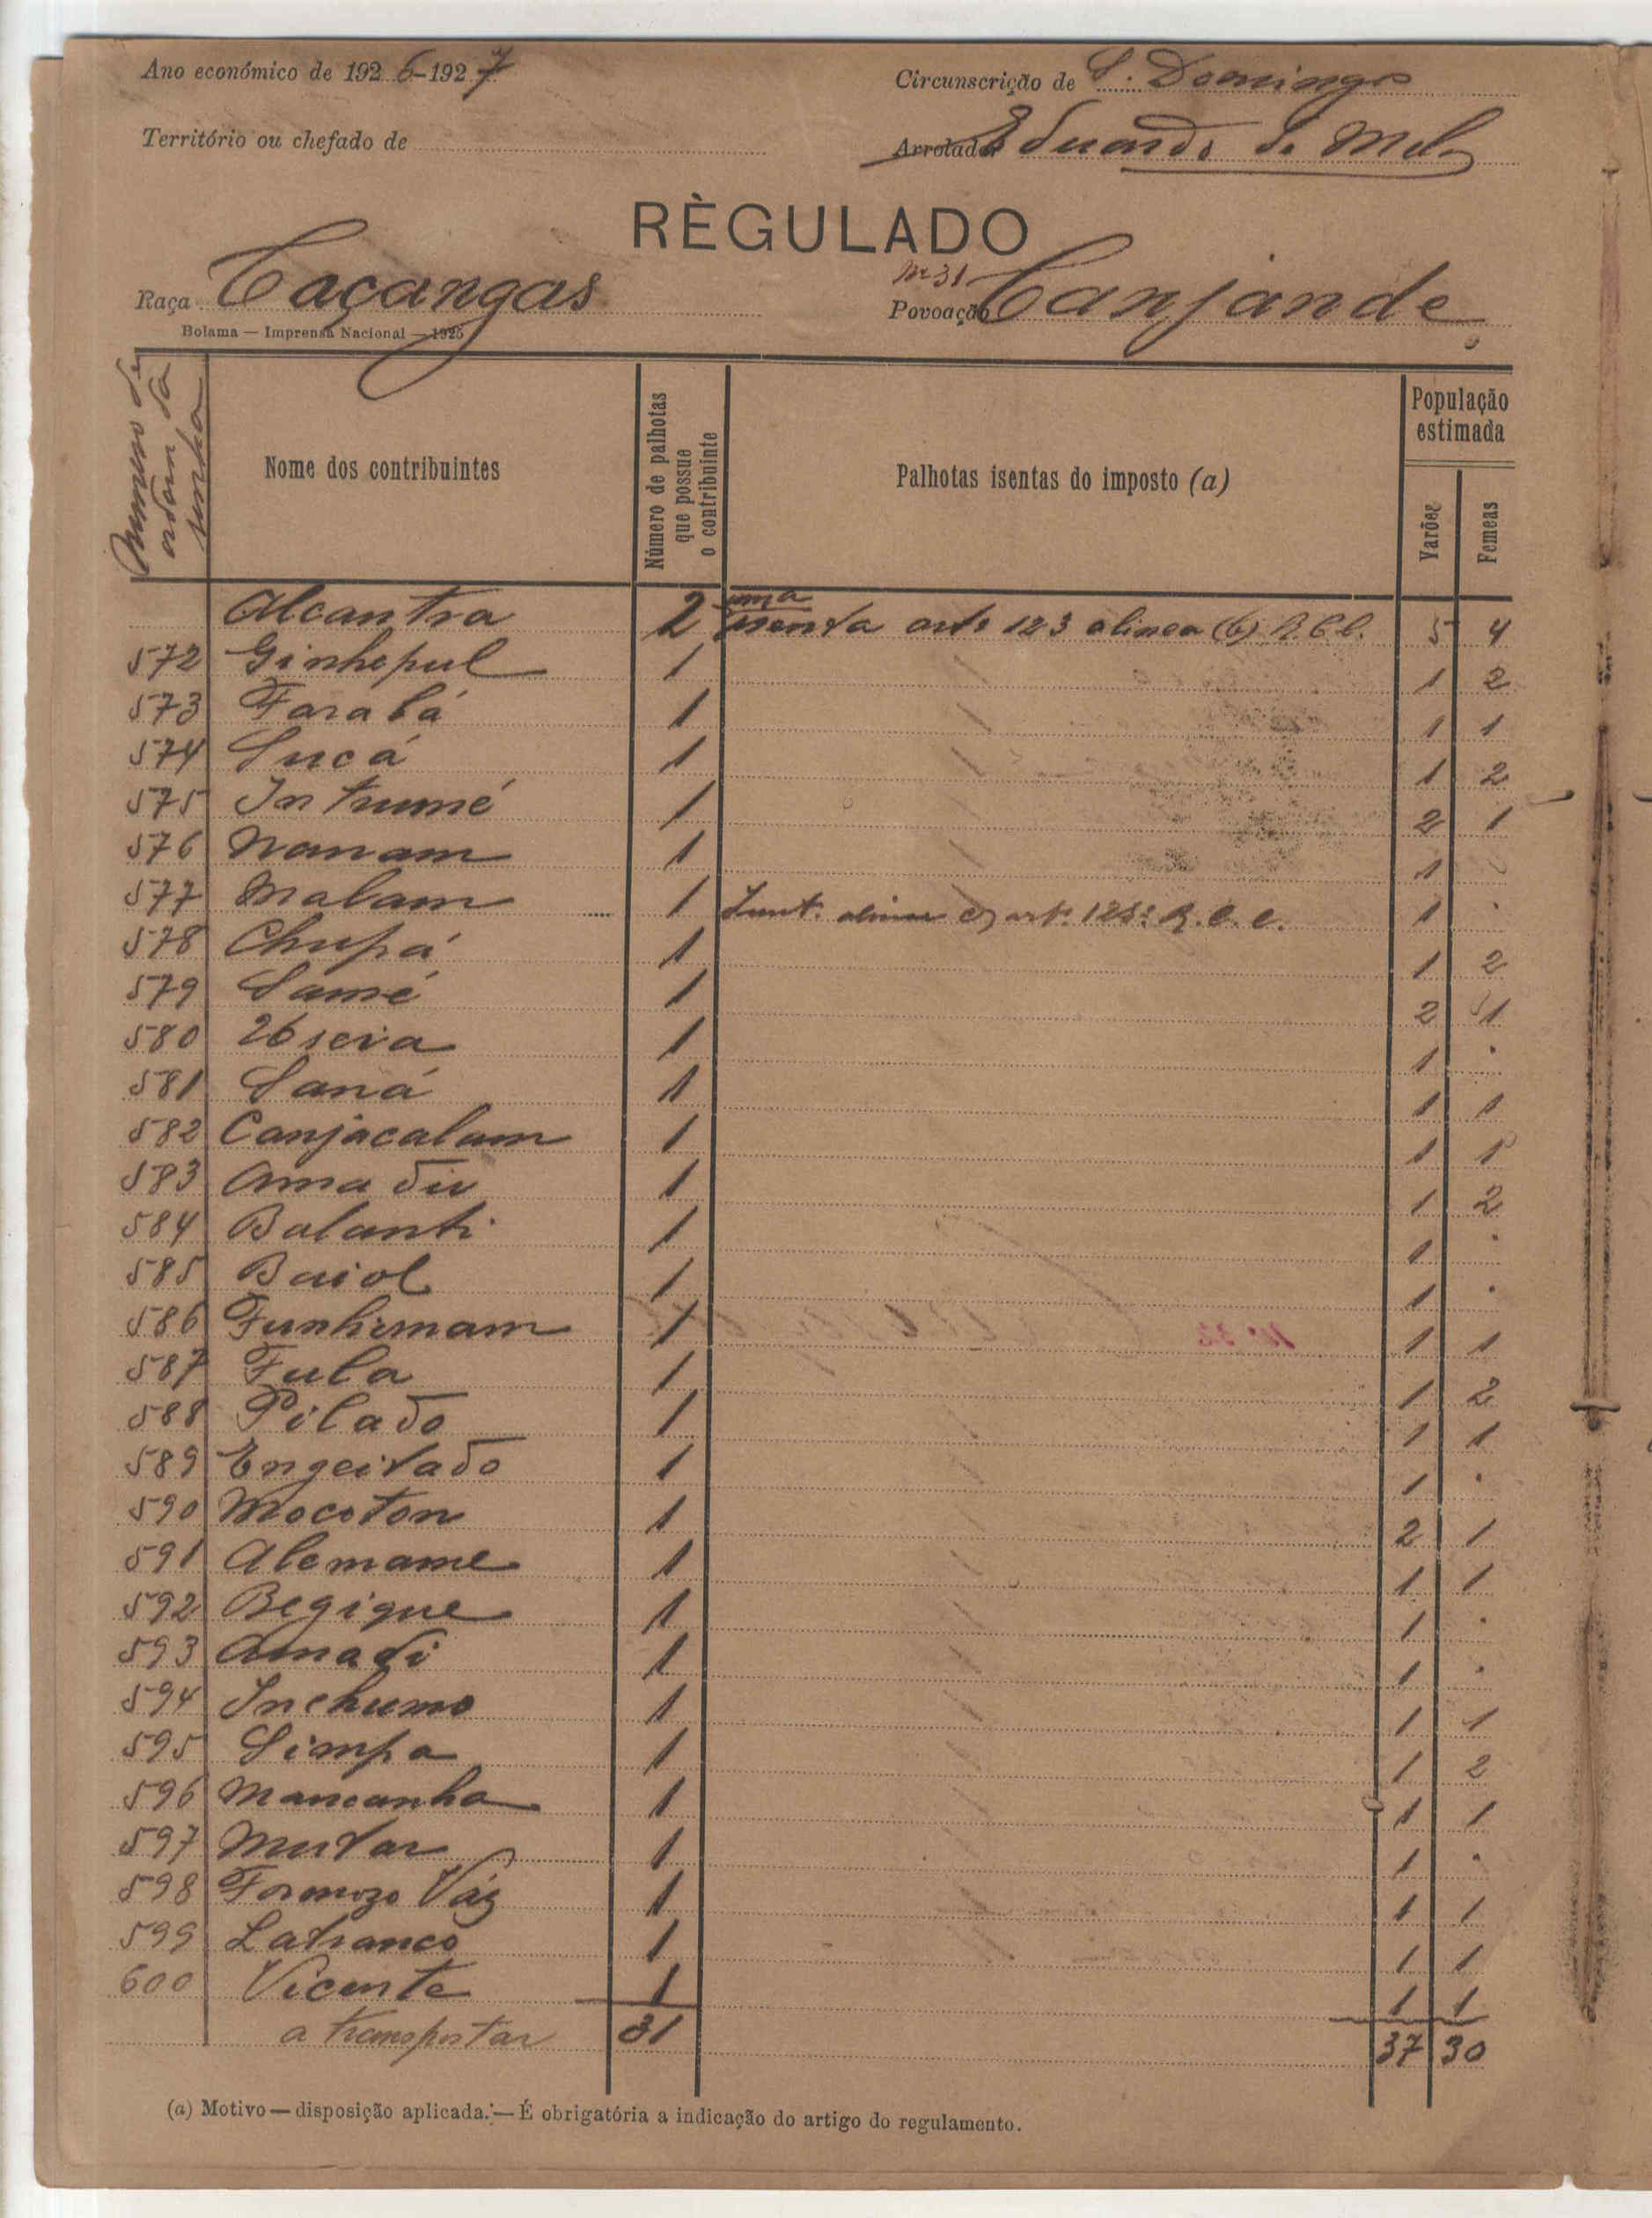 Ano económico de 1926-1927
Circunscrição de S. Domingos
Território ou chefado de
Arrolador Eduardo S. Melo
RÈGULADO
Raça Caçangas
Nº 31
Povoação Canjande
Bolama — Imprensa Nacional — 1925
Numero de ordem da senha
Nome dos contribuintes
Número de palhotas que possue o contribuinte
Palhotas isentas do imposto (a)
População estimada
Varões
Femeas
Alcantra 2 uma isenta art. 123 alinea (b) R.C.C. 5 4
572 Ginhepul 1 1 2
573 Farabá 1 1 1
574 Sucá 1 1 2
575 Intrumé 1 2 1
576 Nanam 1 1
577 Malam 1 art. 123º R.C.C. 1
578 Chupá 1 1 2
579 Samé 1 2 1
580 1 1
581 Saná 1 1 1
582 Canjacalam 1 1 1
583 Amadú 1 1 2
584 Balanti 1 1
585 Baiol 1 1
586 Funhimam 1 1 1
587 Fula 1 1 2
588 Pilado 1 1 1
589 Engeitado 1 1
590 Mocoton 1 2 1
591 Alemame 1 1 1
592 Begique 1 1
593 Amadi 1 1
594 Inchumo 1 1 1
595 Simpa 1 1 2
596 Mancanha 1 1 1
597 Mutar 1 1
598 Formozo Váz 1 1 1
599 Lafranco 1 1 1
600 Vicente 1 1 1
a transportar 31 37 30
(a) Motivo — disposição aplicada. — É obrigatória a indicação do artigo do regulamento.